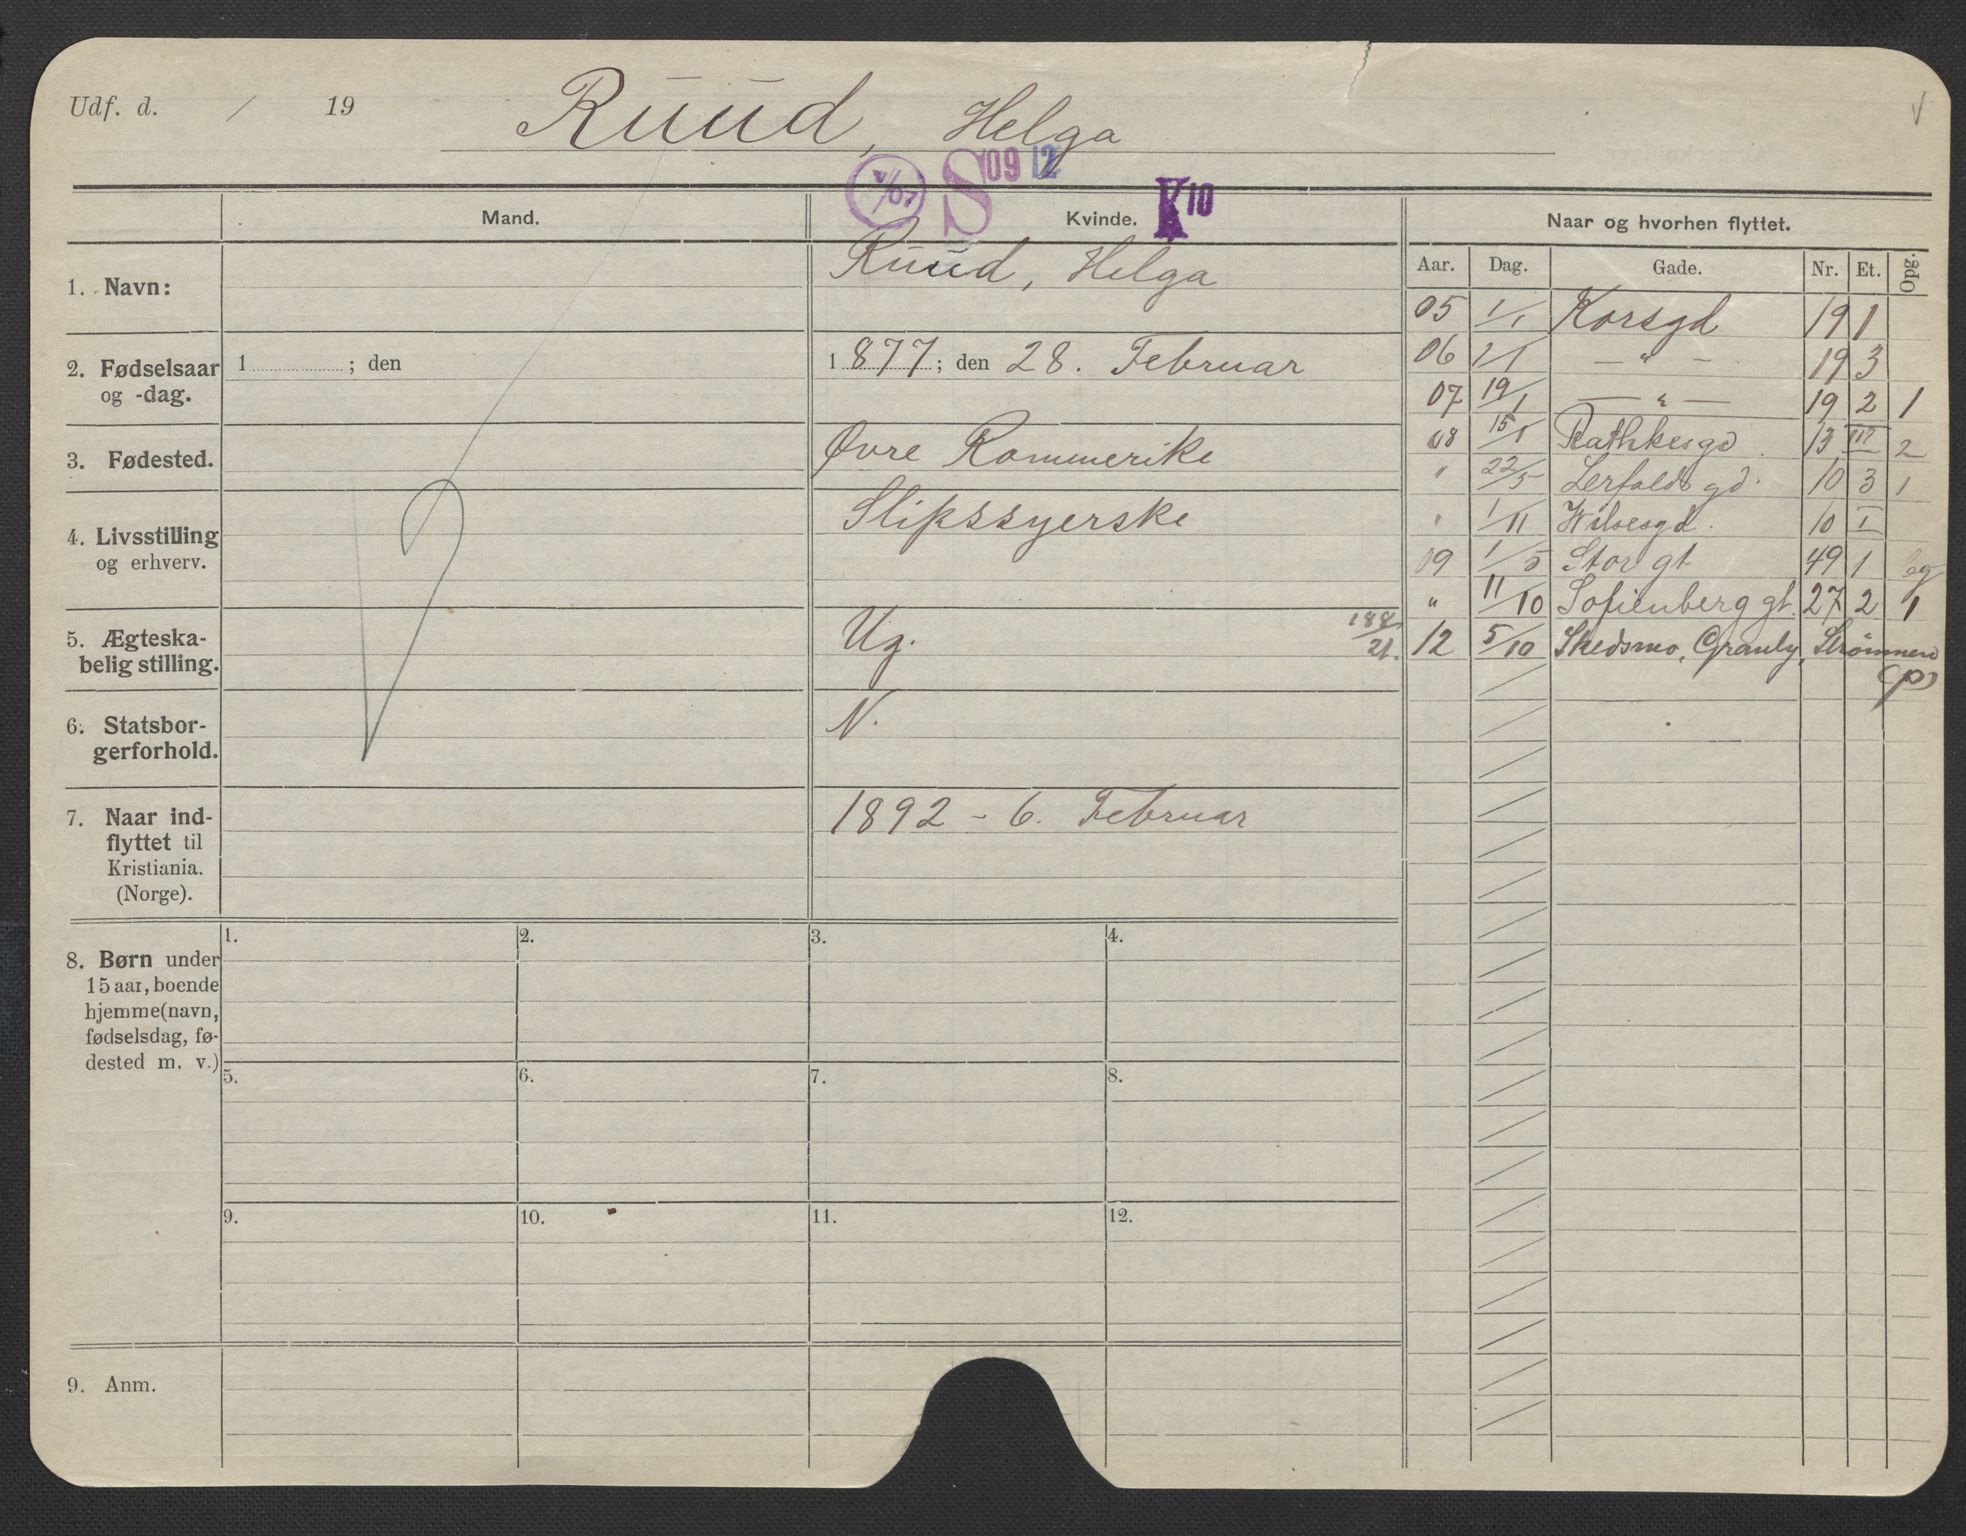 Udf. d. / 19
Ruud, Helga
S 09 12
K 10
Mand.
Kvinde.
Naar og hvorhen flyttet.
Aar. Dag. Gade. Nr. Et. Opg.
1. Navn:
Ruud, Helga
2. Fødselsaar og -dag.
1 ; den
1877; den 28. Februar
3. Fødested.
Øvre Rommerike
4. Livsstilling og erhverv.
Slipssyerske
5. Ægteska-
belig stilling.
Ug.
188/21.
6. Statsbor-
gerforhold.
N.
7. Naar ind-
flyttet til
Kristiania.
(Norge).
1892 - 6. Februar
05 1/1 Korsgd 19 1
06 1/1 — " — 19 3
07 19/1 — " — 19 2 1
08 15/1 Rathkesgd. 13 III 2
" 22/5 Lerfaldsgd. 10 3 1
" 1/11 Wilsesgd. 10 I
09 1/5 Storgt 49 1
" 11/10 Sofienberggt. 27 2 1
12 5/10 Skedsmo, Granly, Strømmen
(p)
8. Børn under
15 aar, boende
hjemme (navn,
fødselsdag, fø-
dested m. v.)
1. 2. 3. 4.
5. 6. 7. 8.
9. 10. 11. 12.
9. Anm.